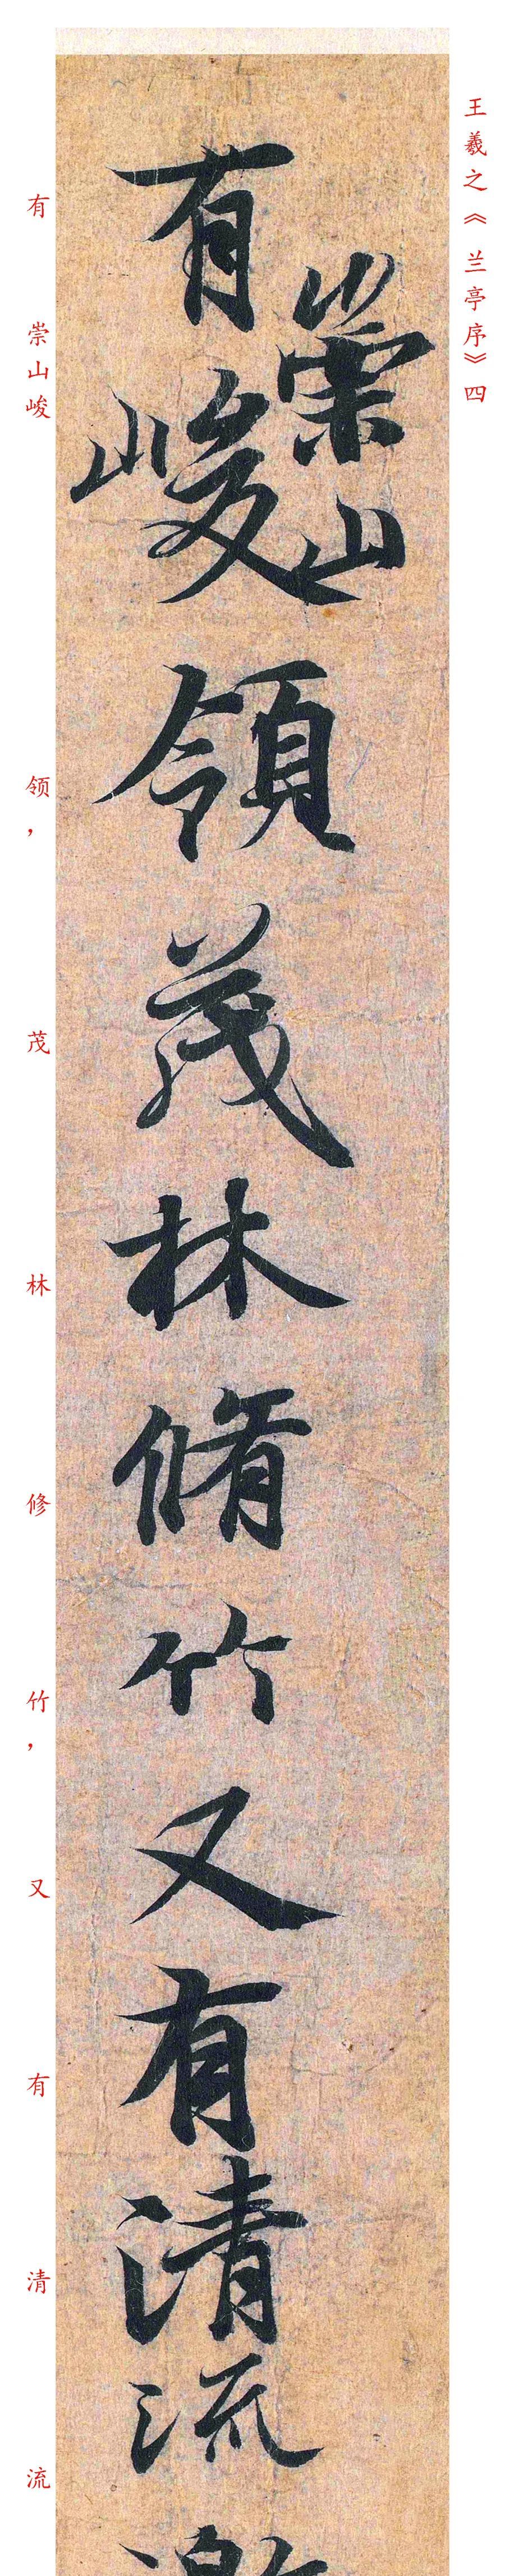 王羲之《兰亭序》四
崇山
有峻領茂林脩竹又有清流
有崇山峻领，茂林修竹，又有清流